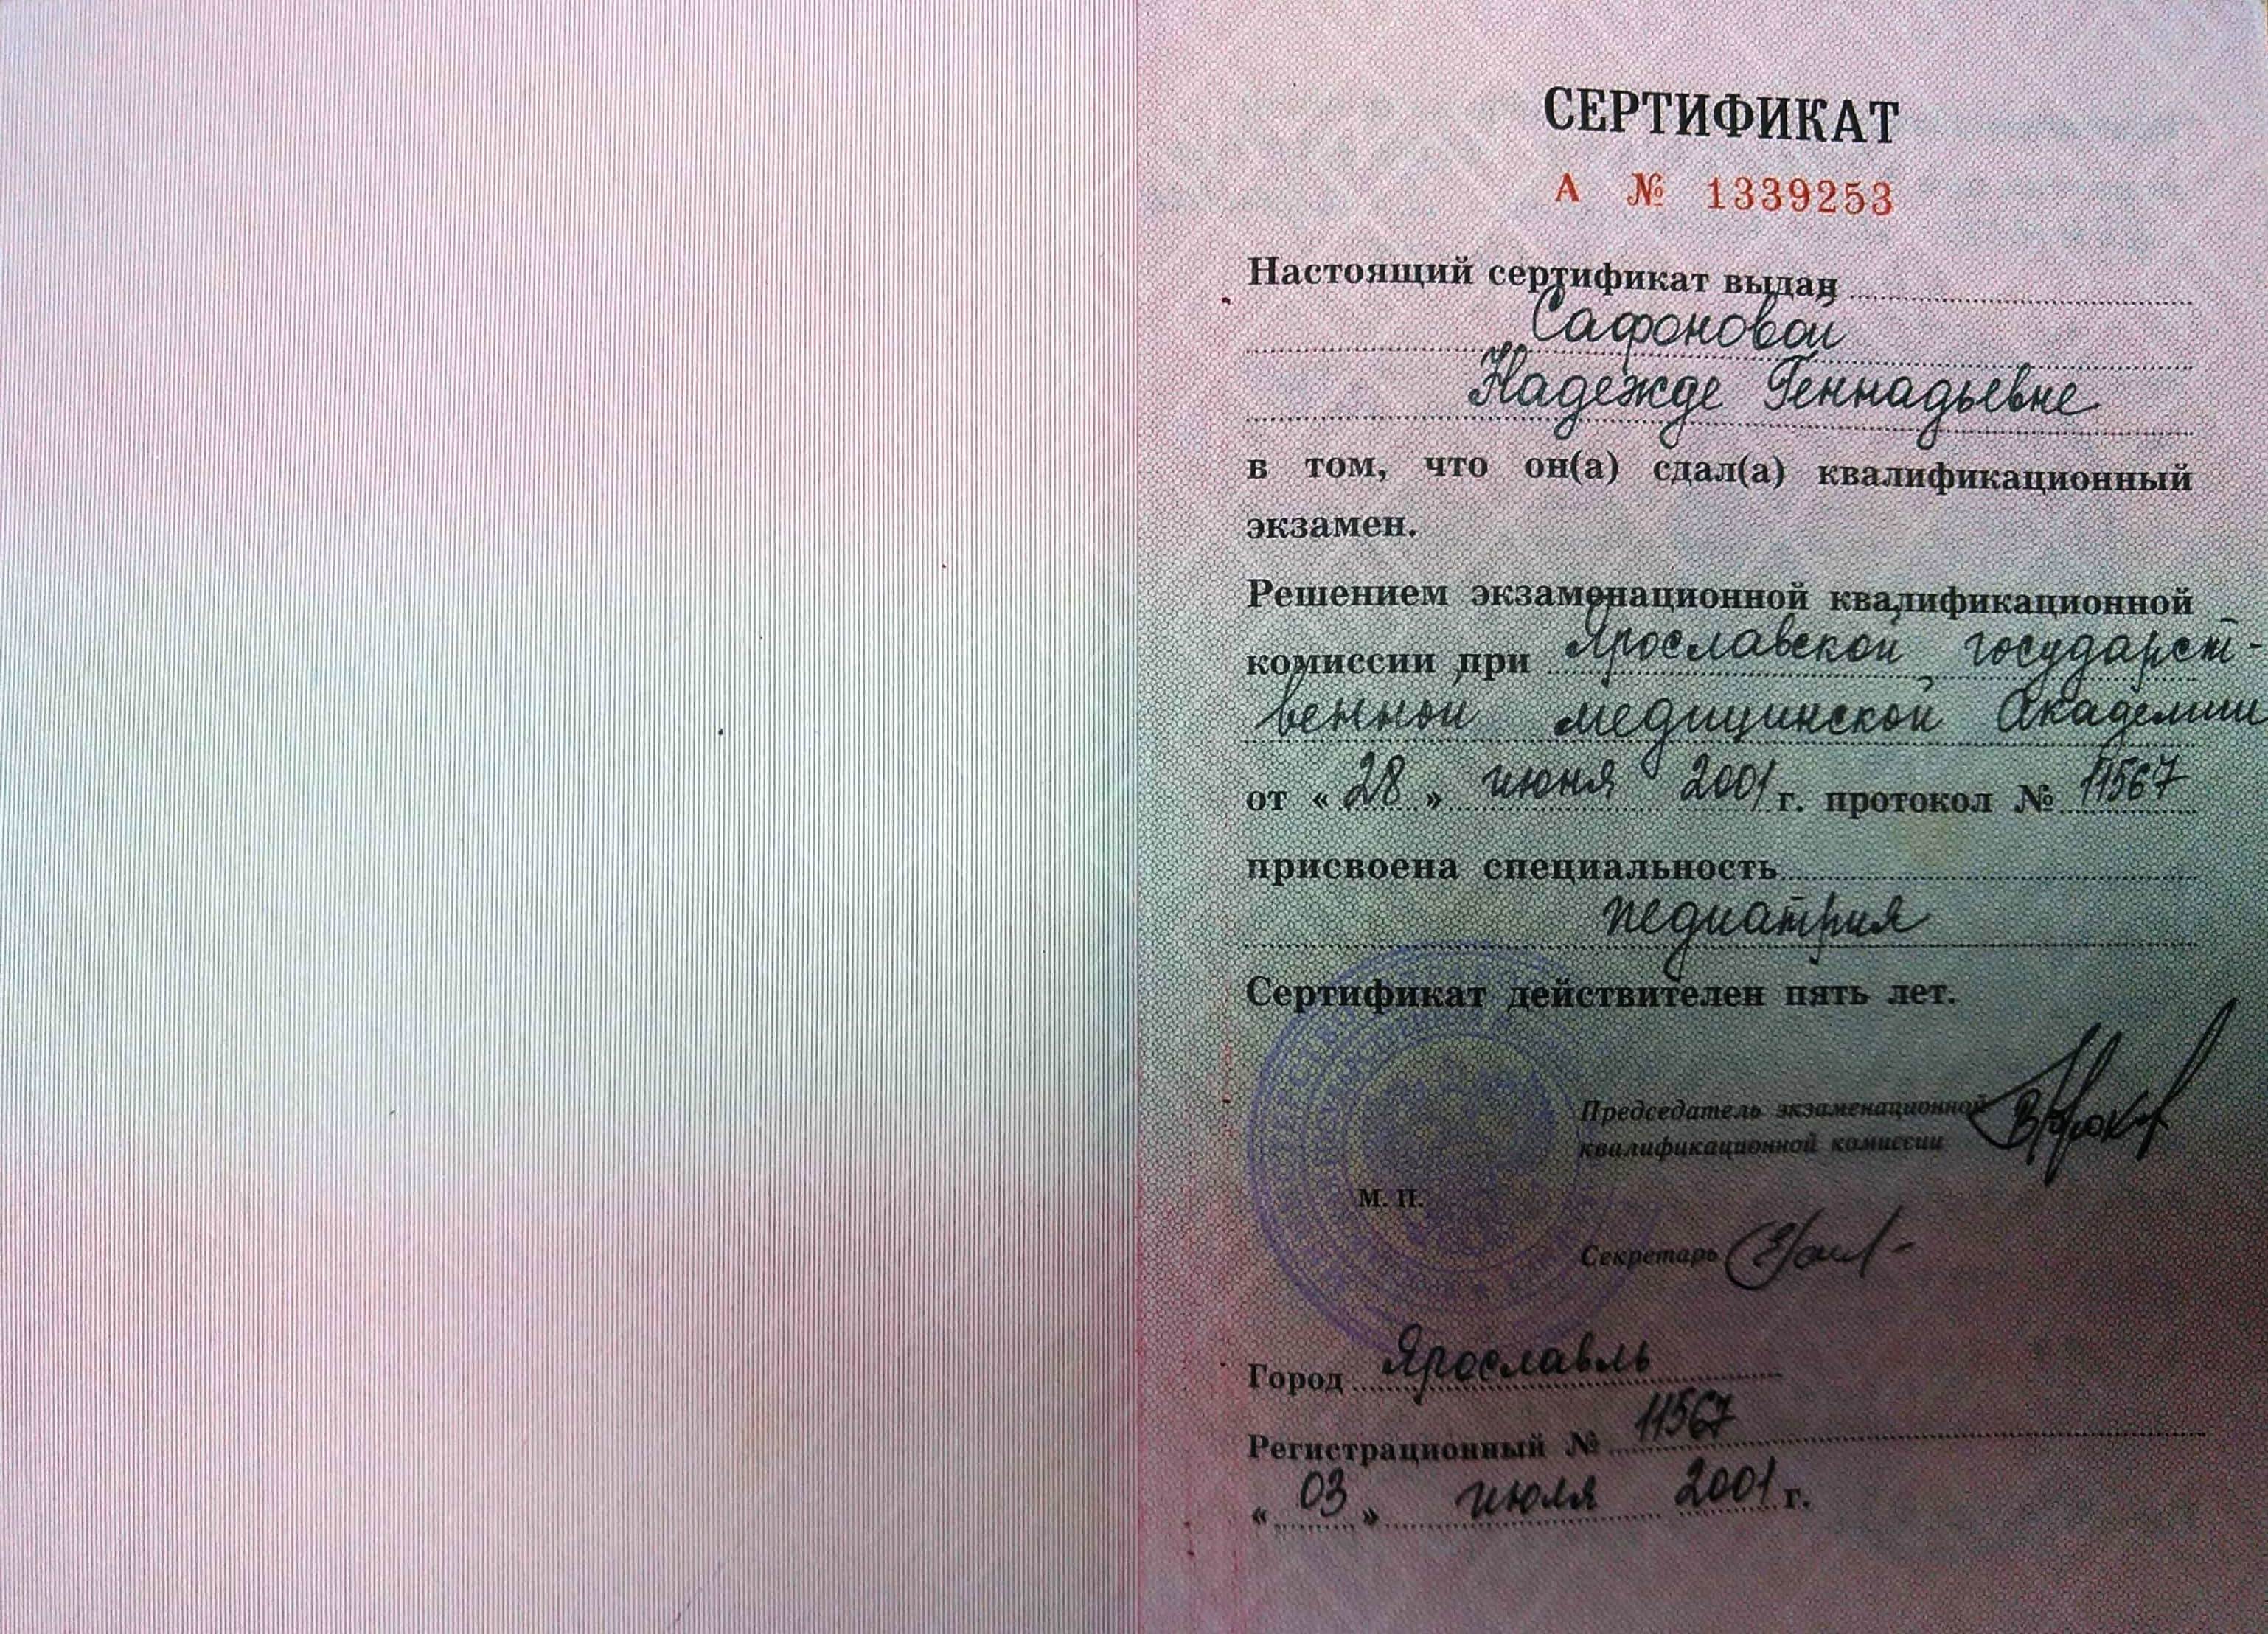 СЕРТИФИКАТ
А № 1339253
Настоящий сертификат выдан
Сафоновой
Надежде Геннадьевне
в том, что он(а) сдал(а) квалификационный
экзамен.
Решением экзаменационной квалификационной
комиссии при Ярославской государст-
венной медицинской Академии
от « 28 » июня 2001 г. протокол № 11567
присвоена специальность
педиатрия
Сертификат действителен пять лет.
Председатель экзаменационной
квалификационной комиссии
М. П.
Секретарь
Город Ярославль
Регистрационный № 11567
« 03 » июля 2001 г.